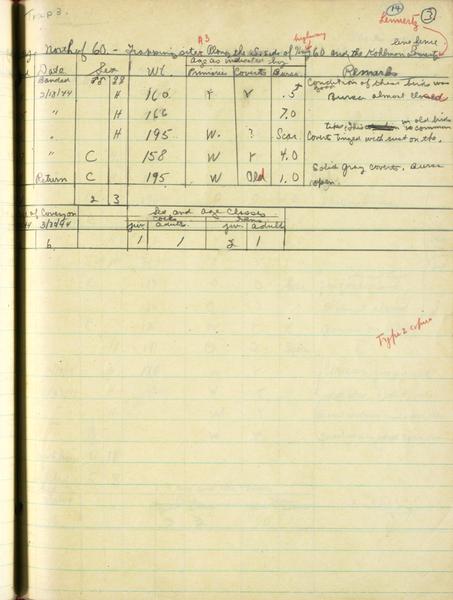 Trap 3.
14
Lennertz 3
A3 highway line fence
North of 60. - Trapping sites along the S. side of 60 and the Kohlman
Age as indicated by
Date Sex Wt. Primaries Coverts Bursa Remarks
Banded Condition of these birds was good
2/18/44 H 160 Y Y .5 Bursa almost closed
" H 166 7.0
" H 195 W. ? Scar. in old birds is common
Coverts tinged with rust on tips.
" C 158 W Y 4.0
Solid gray coverts. Bursa
Return C 195 W Old 1.0 open.
2 3
of Covey on Sex and Age Classes
3/20/44 cocks hens
juv. adults juv. adult
6 1 1 2 1
Type 2 copies